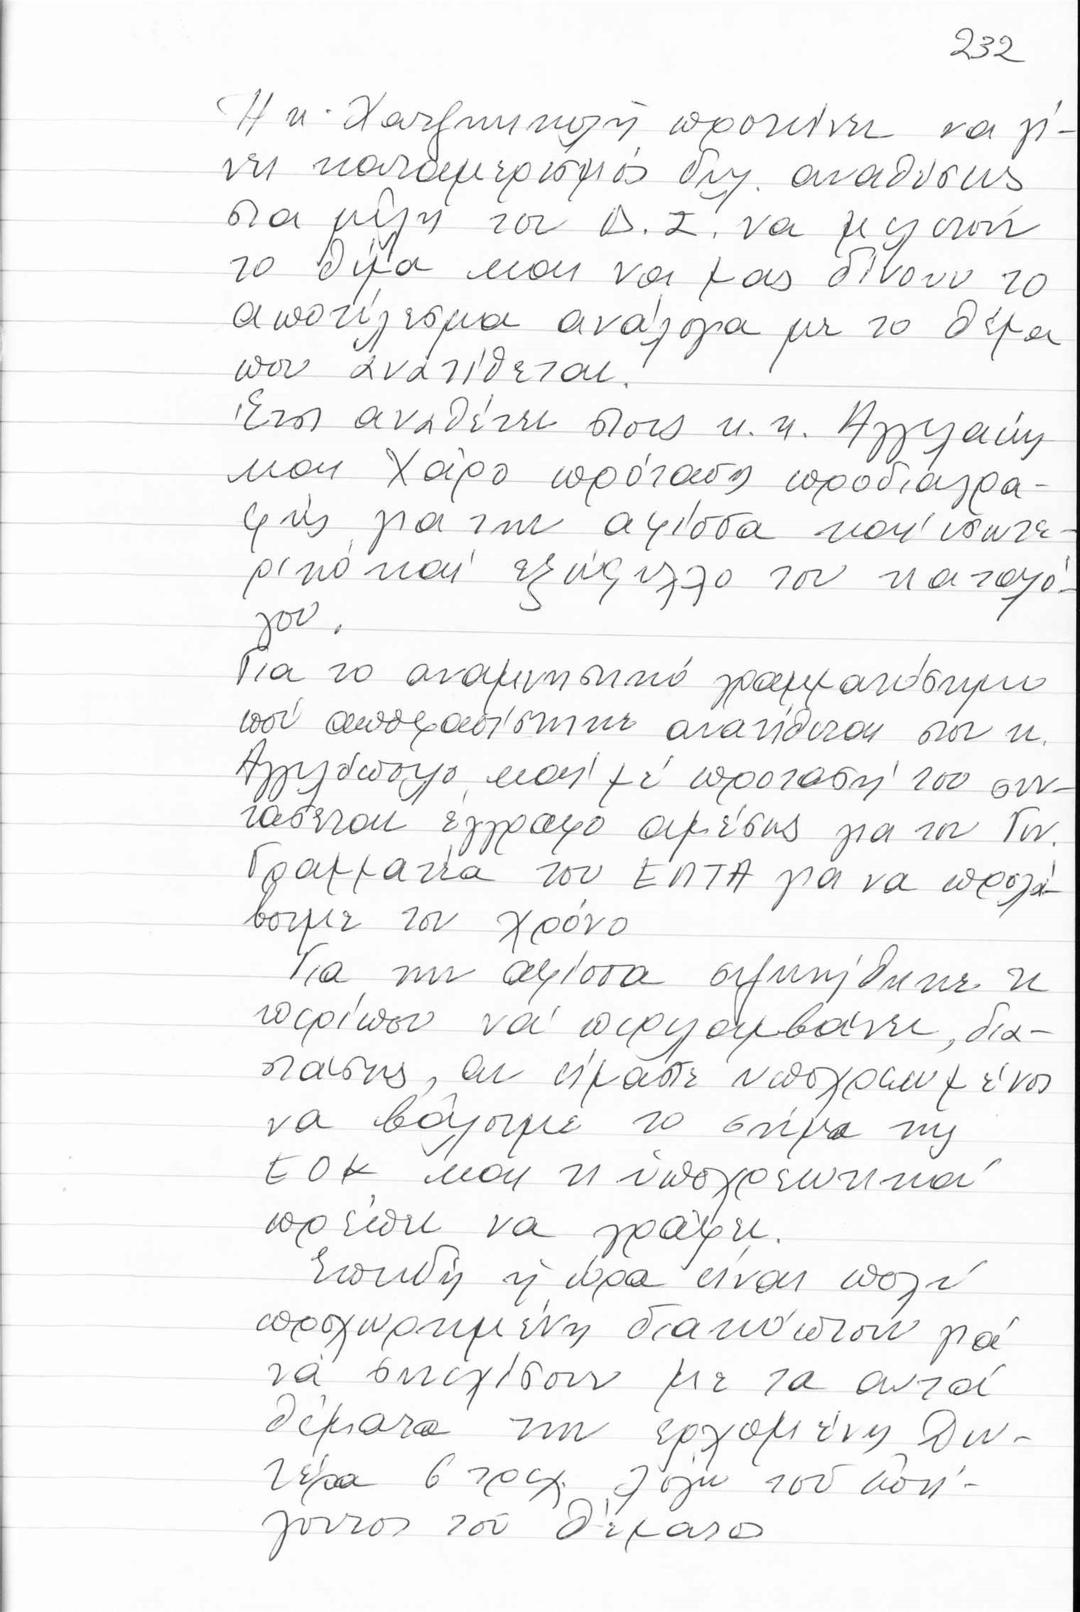 232
Η κ. Χατζηνικολή προτείνει να γί-
νει καταμερισμός δηλ. αναθέσεις
στα μέλη του Δ.Σ. να μελετούν
το θέμα και να μας δίνουν το
αποτέλεσμα ανάλογα με το θέμα
που ανατίθεται.
Έτσι αναθέτει στους κ.κ. Αγγελάκη
και Χάρο πρόταση προδιαγρα-
φής για την αφίσσα καί εσωτε-
ρικό καί εξώφυλλο του καταλό-
γου.
Για το αναμνηστικό γραμματόσημο
πού αποφασίστηκε ανατίθεται στον κ.
Αγγελόπουλο καί μέ πρότασή του συν-
τάσσεται έγγραφο αμέσως για τον Γεν.
Γραμματέα του ΕΛΤΑ για να προλά-
βουμε τον χρόνο
Για την αφίσσα συζητήθηκε τι
περίπου νά περιλαμβάνει, δια-
στάσεις, αν είμαστε υποχρεωμένοι
να βάλουμε το σήμα της
ΕΟΚ και τι υποχρεωτικά
πρέπει να γράφει.
Επειδή ή ώρα είναι πολύ
προχωρημένη διακόπτουν γιά
νά συνεχίσουν με τα αυτά
θέματα την ερχομένη Δευ-
τέρα 6 τρεχ. λόγω τού επεί-
γοντος τού θέματος